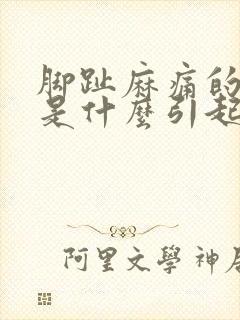 脚趾麻痛的
是什麼引起
阿里文學神居